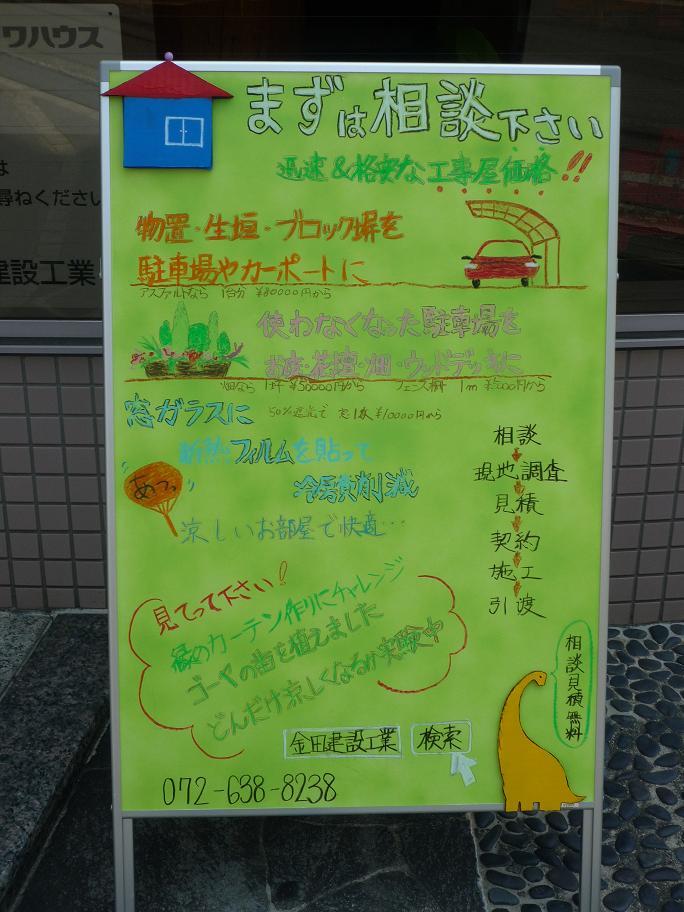 ワハウス
は
尋ねください
建設工業
まずは相談下さい
迅速&格安な工事屋価格!!
物置・生垣・ブロック塀を
駐車場やカーポートに
アスファルトなら 1台分 ¥80000円から
使わなくなった駐車場を
お庭・花壇・畑・ウッドデッキに
畑なら 1坪 ¥30000円から フェンス 1m から
窓ガラスに
50%遮光で 窓1枚¥10000円から
断熱フィルムを貼って
冷房費削減
あつっ
涼しいお部屋で快適…
相談
現地調査
見積
契約
施工
引渡
見てって下さい!
緑のカーテン作りにチャレンジ
ゴーヤの苗を植えました
どんだけ涼しくなるか実験中
相談見積無料
金田建設工業 検索
072-638-8238